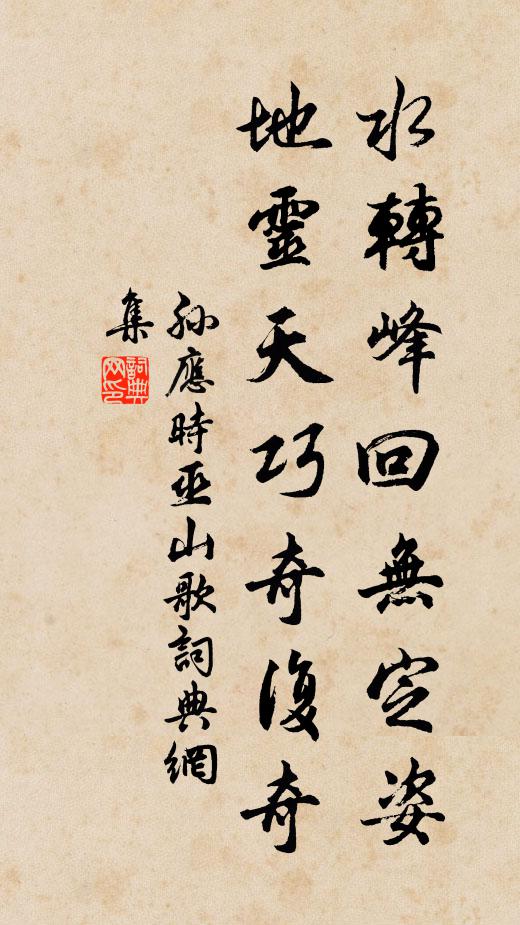 水轉峰回無定姿
地靈天巧奇復奇
孫應時巫山歌詞典網
集
詞典网印